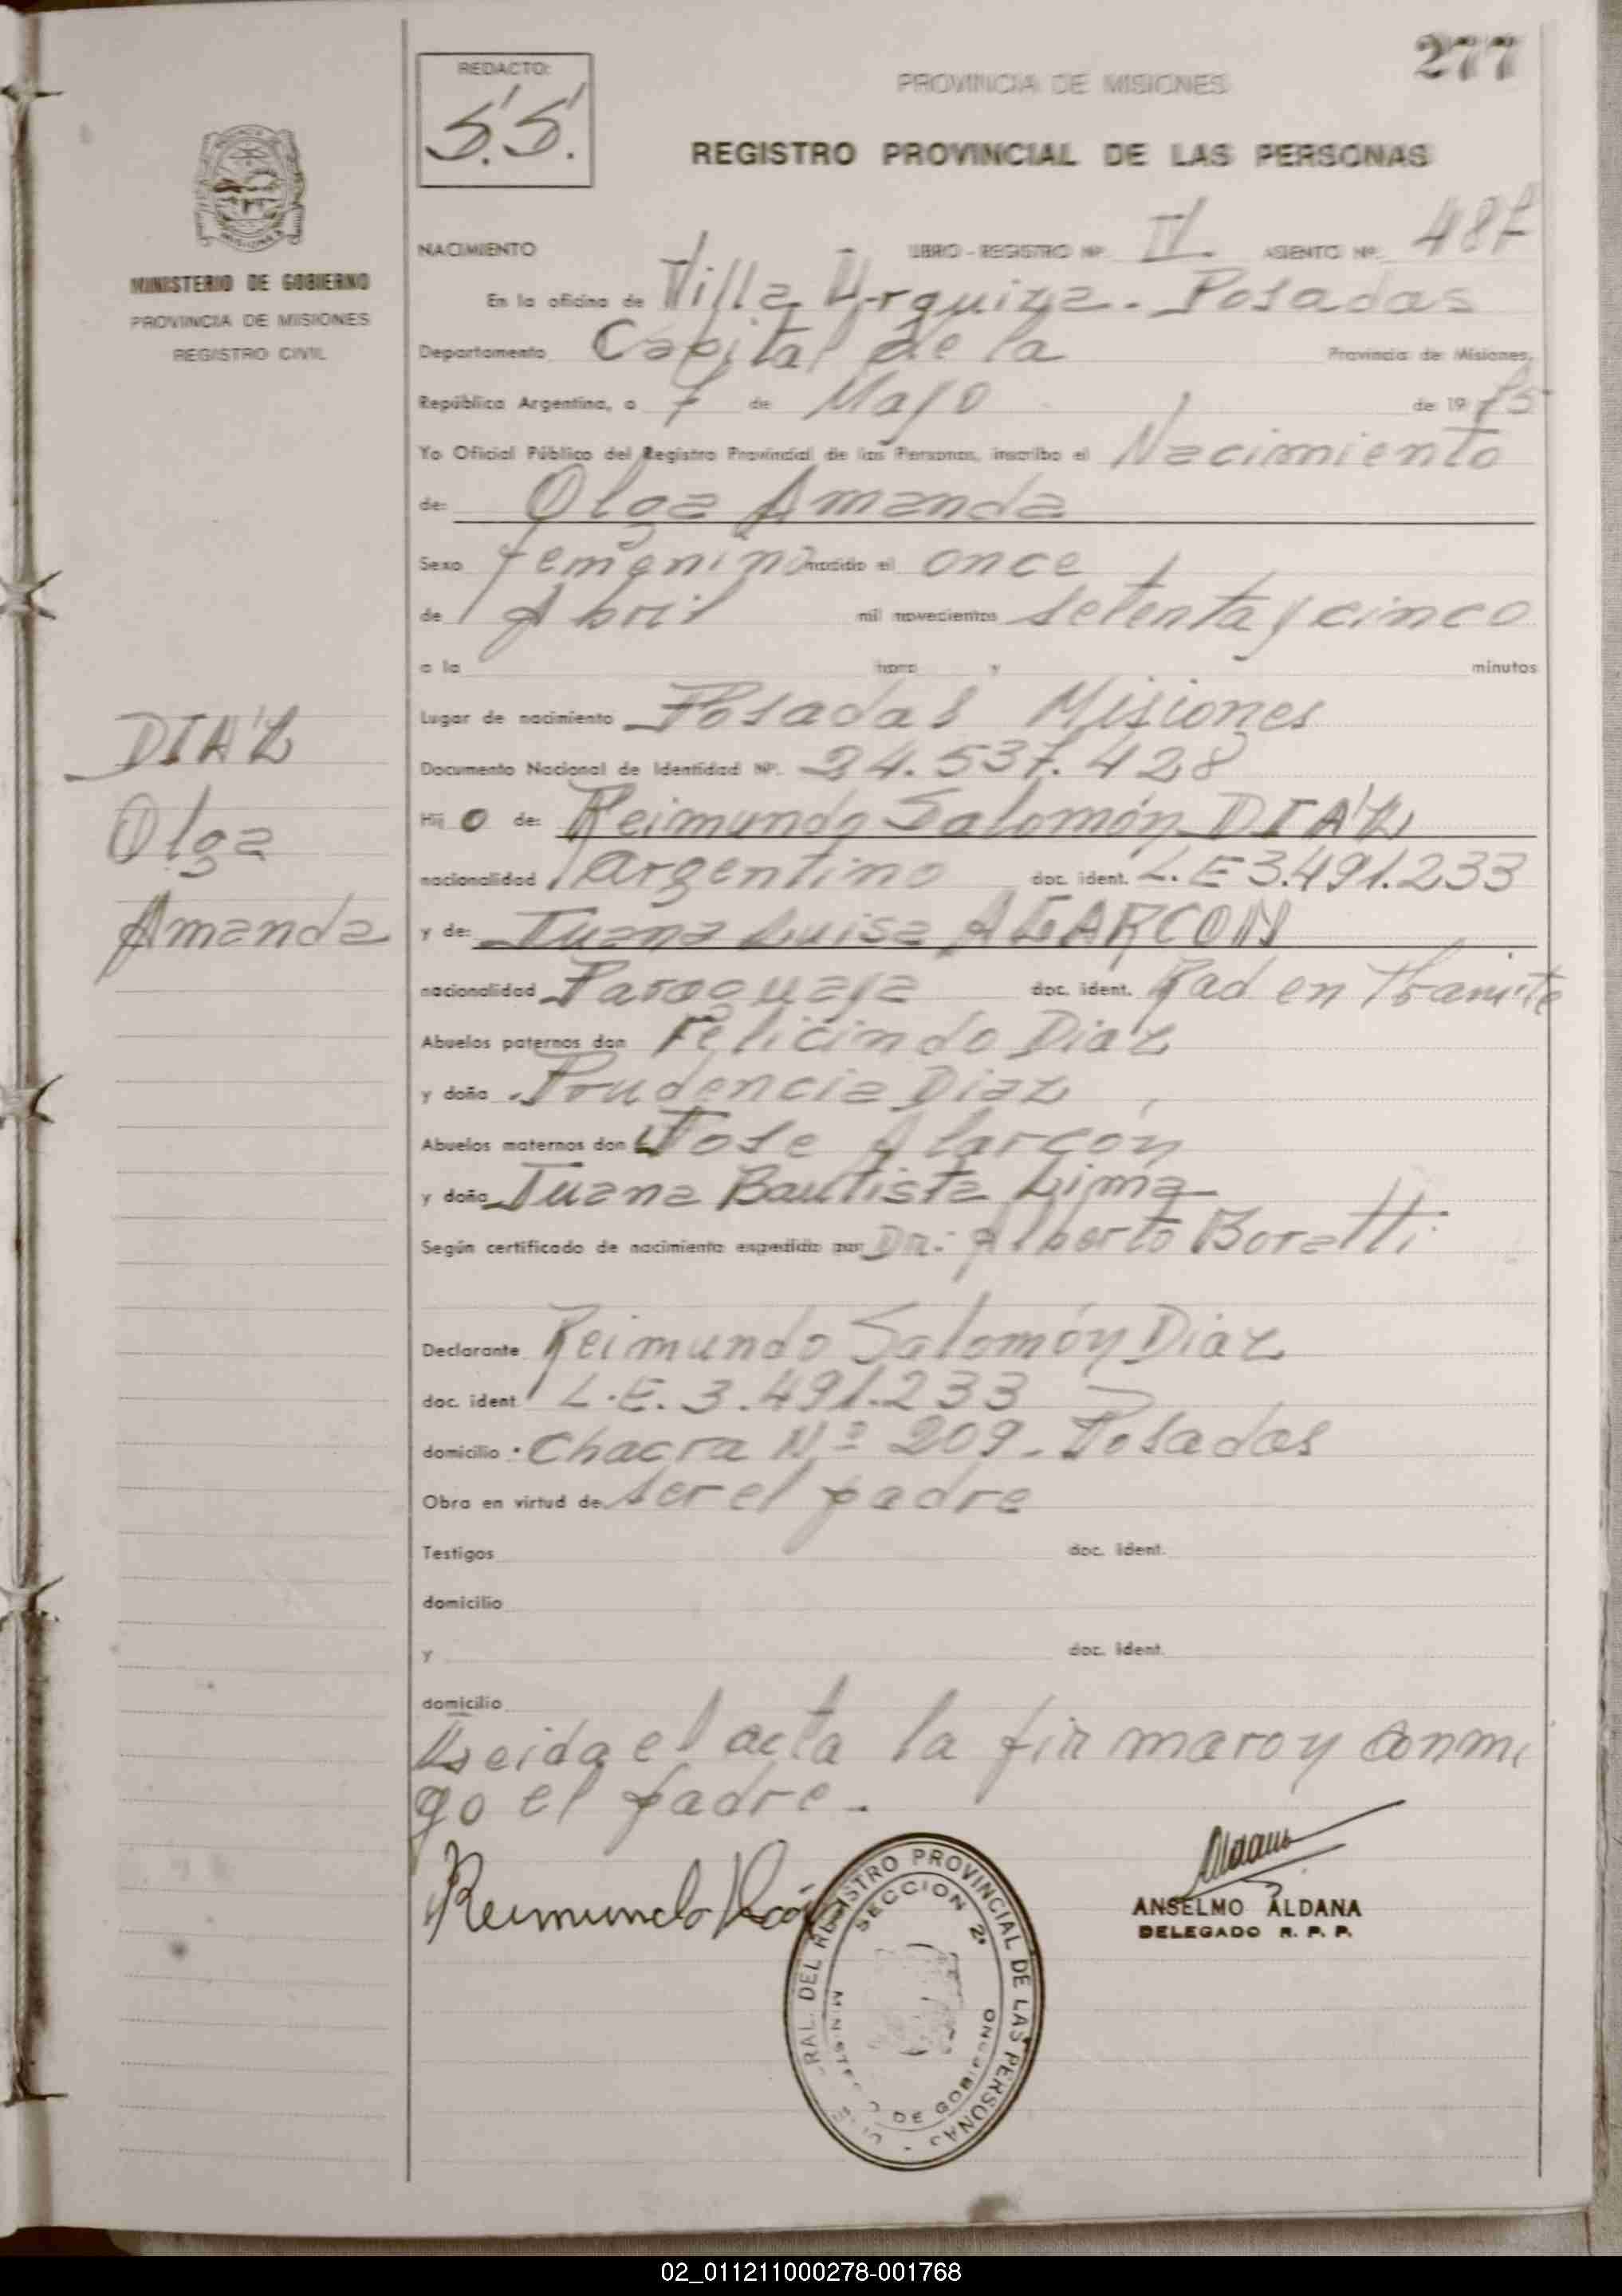 277
REDACTO:
S.S.
PROVINCIA DE MISIONES
REGISTRO PROVINCIAL DE LAS PERSONAS
MINISTERIO DE GOBIERNO
PROVINCIA DE MISIONES
REGISTRO CIVIL
NACIMIENTO LIBRO - REGISTRO Nº IV. ASIENTO Nº 487
En la oficina de Villa Urquiza. Posadas
Departamento Capital de la Provincia de Misiones,
República Argentina, a 7 de Mayo de 1975
Yo Oficial Público del Registro Provincial de las Personas, inscribo el Nacimiento
de: Olga Amanda
Sexo femenino nacido el once
de Abril mil novecientos setenta y cinco
a la hora y minutos
Lugar de nacimiento Posadas Misiones
DIAZ
Olga
Amanda
Documento Nacional de Identidad Nº. 24.537.428
Hij o de: Reimundo Salomón DIAZ
nacionalidad Argentino doc. ident. L.E 3.491.233
y de: Juana Luisa ALARCON
nacionalidad Paraguaya doc. ident. Rad en tramite
Abuelos paternos don Felicindo Diaz
y doña Prudencia Diaz
Abuelos maternos don Jose Alarcón
y doña Juana Bautista Lima
Según certificado de nacimiento expedido por Dr: Alberto Boratti
Declarante Reimundo Salomón Diaz
doc. ident. L.E. 3.491.233
domicilio Chacra Nº 209. Posadas
Obra en virtud de ser el padre
Testigos doc. ident.
domicilio
y doc. ident.
domicilio
Leida el acta la firmaron conmi
go el padre.
Reimundo
REGISTRO PROVINCIAL DE LAS PERSONAS
SECCION 2ª
DE GOBIERNO
ANSELMO ALDANA
DELEGADO R. P. P.
02_011211000278-001768